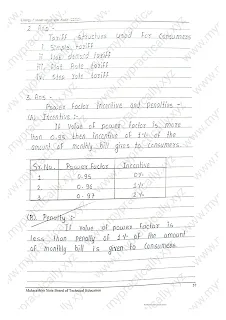 2. Ans :-
Tariff structure used for consumers
i. Simple tariff
ii. demand tariff
iii. Flat Rate tariff
iv. Step rate tariff
3. Ans :-
Power Factor Incentive and penalties :-
(A) Incentive :-
If value of power factor is more
than 0.95 then incentive of 1% of the
amount of monthly bill gives to consumers.
Sr.No. Power factor Incentive
1 0.95 0%
2. 0.96 1%
3. 0.97 2%
(B) Penalty :-
If value of power factor is
less than penalty of 1% of the amount
of monthly bill is given to consumers.
Maharashtra State Board of Technical Education